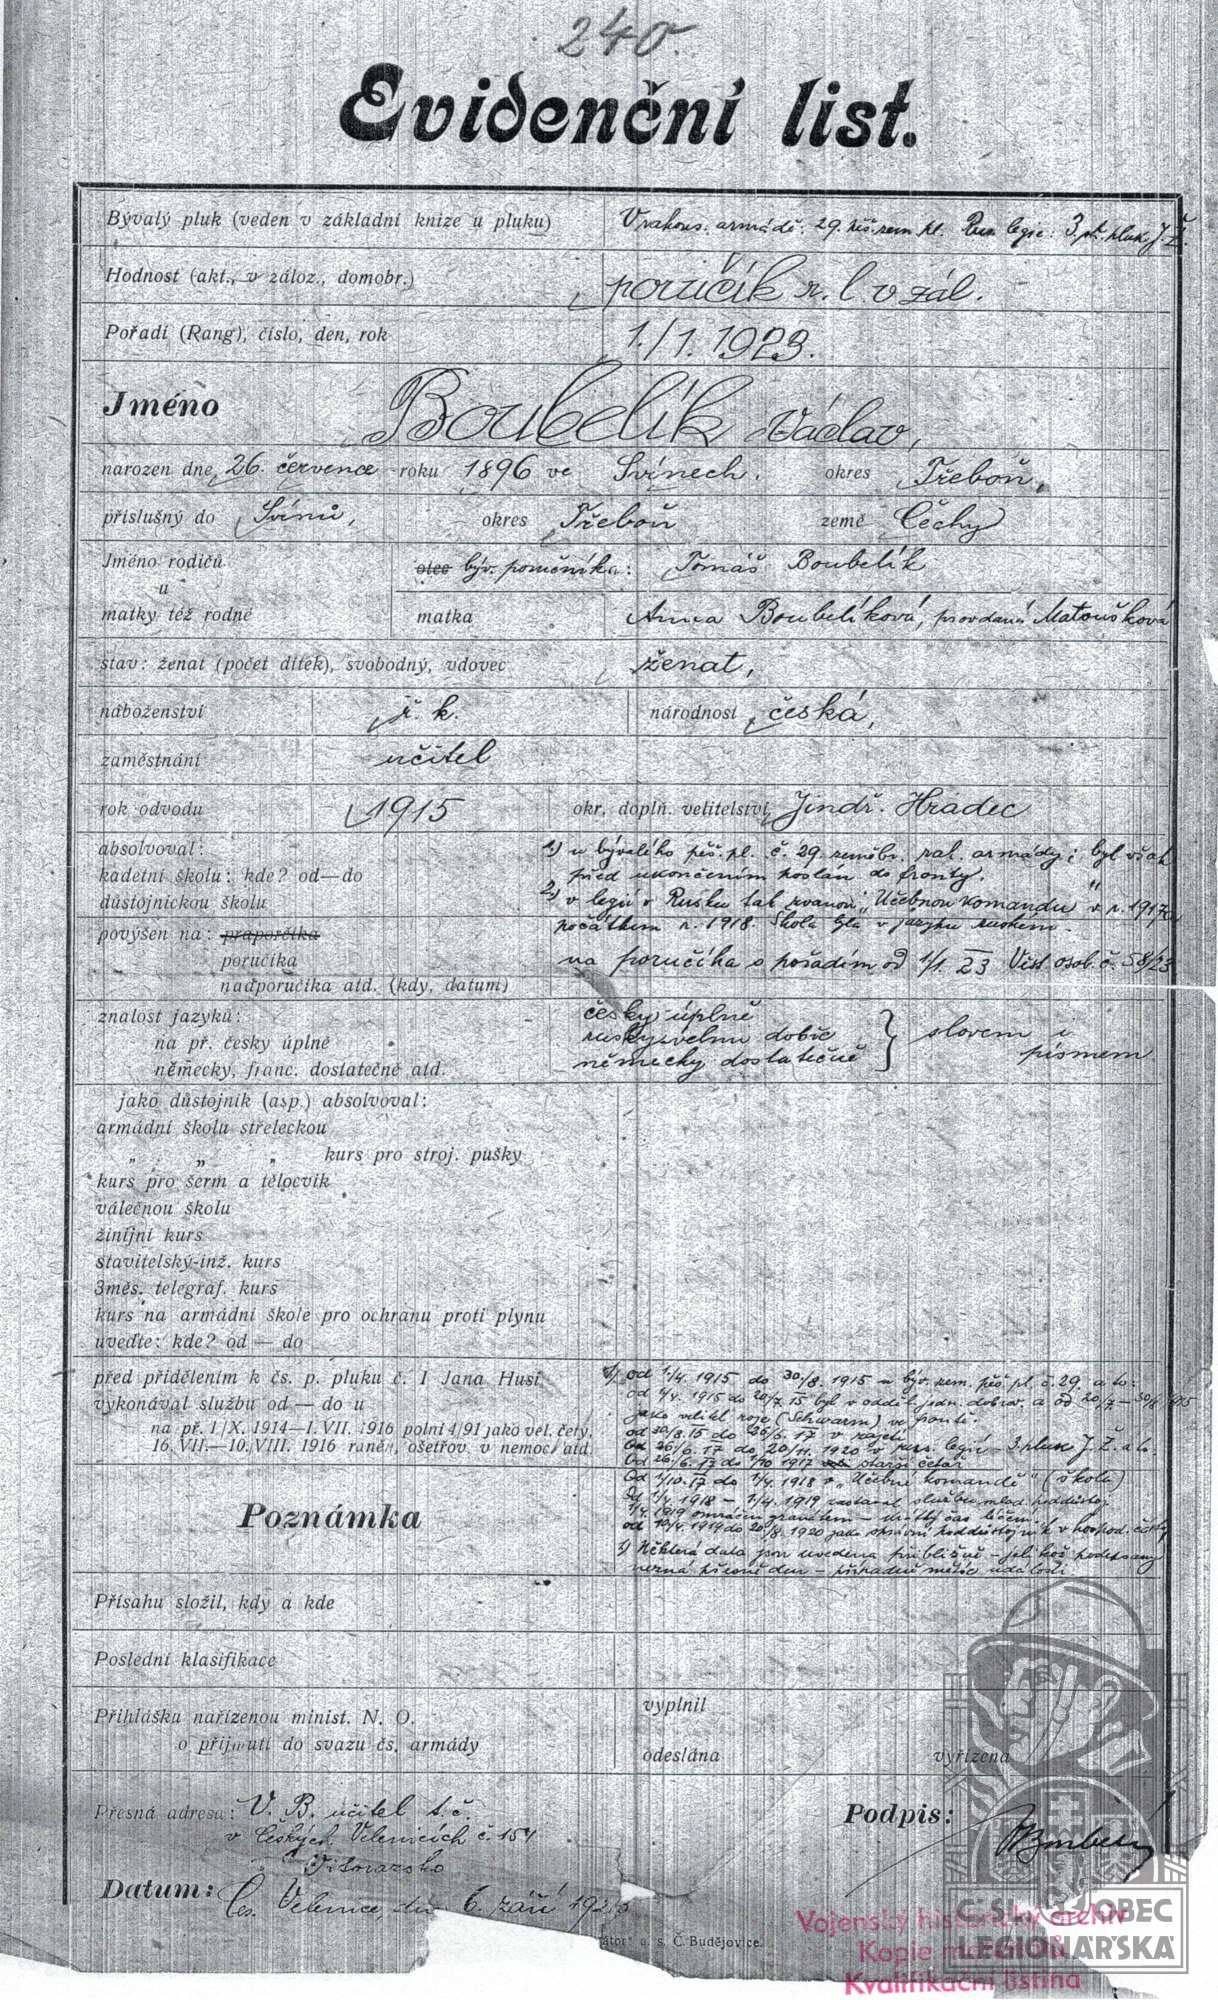 240.
Evidenční list.
Bývalý pluk (veden v základní knize u pluku) V rakous. armádě: 29. Rus. legie: 3. pluk J. Ž.
Hodnost (akt., v záloz., domobr.) poručík r. l. v zál.
Pořadí (Rang), číslo, den, rok 1./1. 1923.
Jméno Boubelík Václav,
narozen dne 26. července roku 1896 ve Svinech. okres Třeboň,
příslušný do Svinů, okres Třeboň země Čechy
Jméno rodičů otec býv. poručníka: Tomáš Boubelík
u
matky též rodné matka Anna Boubelíková, provdaná Matoušková
stav: ženat (počet dítek), svobodný, vdovec ženat,
náboženství ř. k. národnost česká,
zaměstnání učitel
rok odvodu 1915 okr. doplň. velitelství Jindř. Hradec
absolvoval: 1) u bývalého pěš. pl. č. 29. zeměbr. rak. armády; byl však
kadetní školu: kde? od—do před ukončením poslan do fronty.
důstojnickou školu 2) v legii v Rusku tak zvanou „Učebnou komandu" v r. 1917 a
počátkem r. 1918. Škola byla v jazyku ruském.
povýšen na: praporčíka
poručíka na poručíka s pořadím od 1/1. 23 Věst. osob. č. 58/23
nadporučíka atd. (kdy, datum)
znalost jazyků: česky úplně
na př. česky úplně rusky velmi dobře } slovem i
německy, franc. dostatečně atd. německy dostatečně písmem
jako důstojník (asp.) absolvoval:
armádní školu střeleckou
„ „ „ kurs pro stroj. pušky
kurs pro šerm a tělocvik
válečnou školu
žinijní kurs
stavitelský-inž. kurs
3měs. telegraf. kurs
kurs na armádní škole pro ochranu proti plynu
uveďte: kde? od — do
před přidělením k čs. p. pluku č. 1 Jana Husi 1) od 1/4. 1915 do 30/8. 1915 u býv. zem. pěš. pl. č. 29. a to:
vykonával službu od — do u od 1/4. 1915 do 20/7. 15 byl v odděl. jedn. dobrov. a od 20/7 — 30/8 1915
jako velitel roje (Schwarm) ve frontě.
na př. 1/X. 1914—1. VII. 1916 polní 4/91 jako vel. čety, od 30/8. 15 do 26/6. 17 v zajetí
16. VII.—10. VIII. 1916 raněn, ošetřov. v nemoc. atd. Od 26/6. 17 do 20/11. 1920 v rus. legii — 3. pluk J. Ž. a to:
Od 26/6. 17 do 1/10 1917 starší četař
Od 1/10. 17 do 1/4. 1918 v „Učebné komandě" (škola)
Poznámka Od 1/4. 1918 — 1/4. 1919 zastával službu mlad. poddůstoj.
1/4. 1919 omráčen granátem — krátký čas léčen.
v hospod. části,
1) Některá data jsou uvedena přibližně — jelikož podepsaný
nezná přesně den — případně měsíc události
Přísahu složil, kdy a kde
Poslední klasifikace
Přihlášku nařízenou minist. N. O. vyplnil
o přijmutí do svazu čs. armády odeslána vyřízena
Přesná adresa: V. B. učitel t. č.
v Českých Velenicích č. 154
Vitorazsko
Podpis: Boubelík
Datum: Čes. Velenice dne 6. září
a. s. Č. Budějovice.
ČSL. OBEC
LEGIONÁŘSKÁ
Vojenský historický archiv
Kopie materiálů
Kvalifikační listina